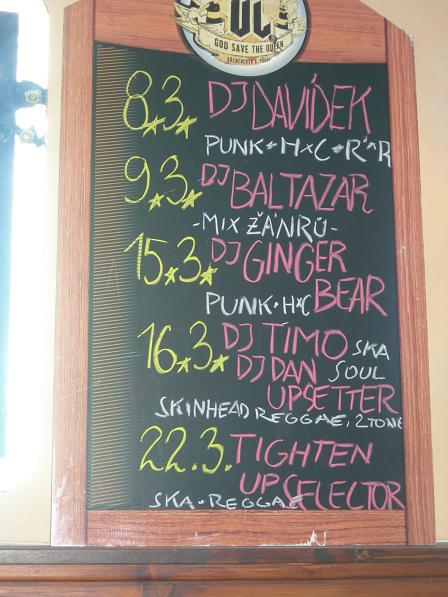 UL
GOD SAVE THE QUEEN
8.3. DJ DAVÍDEK
PUNK * H×C * R'n'R
9.3. DJ BALTAZAR
-MIX ŽÁNRŮ-
15.3. DJ GINGER
PUNK · H×C BEAR
16.3. DJ TIMO SKA
DJ DAN SOUL
UPSETTER
SKINHEAD REGGAE, 2TONE
22.3. TIGHTEN
UP SELECTOR
SKA · REGGAE